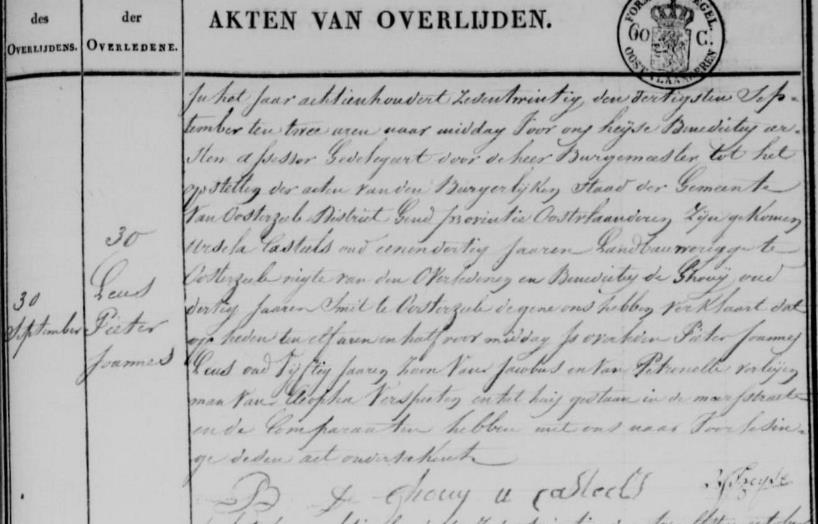 des
OVERLIJDENS.
der
OVERLEDENE.
AKTEN VAN OVERLIJDEN.
60 C.
30
September
30
Leus
Pieter
Joannes
In het Jaar achtienhondert Zeventwintig, den dertigsten Sep-
tember ten twee uren naar middag Voor ons heyse Benedictus eer-
sten assessor Gedelegeert door de heer Burgemeester tot het
opstellen der acten van den Burgerlijken Staad der Gemeente
Van Oosterzeele District Gend provintie Oostvlaanderen Zijn gekomen
Ursula Casteels oud eenendertig Jaaren Landbouwerigge te
Oosterzeele nigte van den Overledenen en Benedictus de Ghouy oud
dertig Jaaren Smit te Oosterzeele degene ons hebben verklaart dat
op heden ten elf uren en half voor middag is overleden Pieter Joannes
Leus oud Vijftig Jaaren Zoon Van Jacobus en Van Petronelle
man Van Cleopha Verspeeten en tet huis gestaan in de
ende Comparanten hebben met ons naar Voorlesin-
ge dezen act onderteekent
B De ghouy u casteels